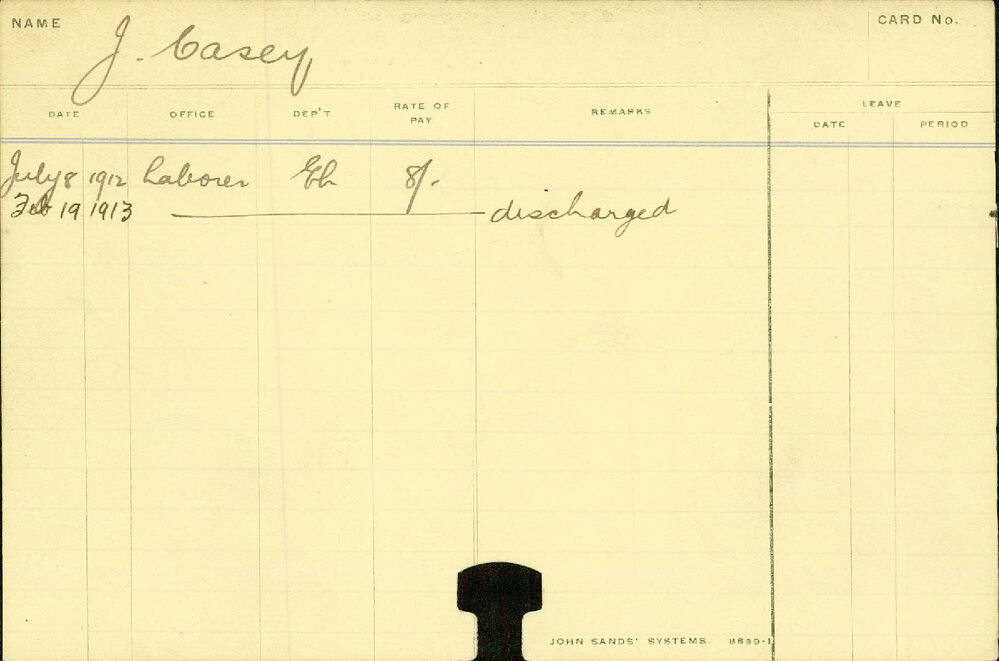 NAME J. Casey CARD No.
DATE OFFICE DEP'T RATE OF PAY REMARKS LEAVE
DATE PERIOD
July 8 1912 Laborer 8/-
Feb 19 1913 discharged
JOHN SANDS' SYSTEMS. 8689-1